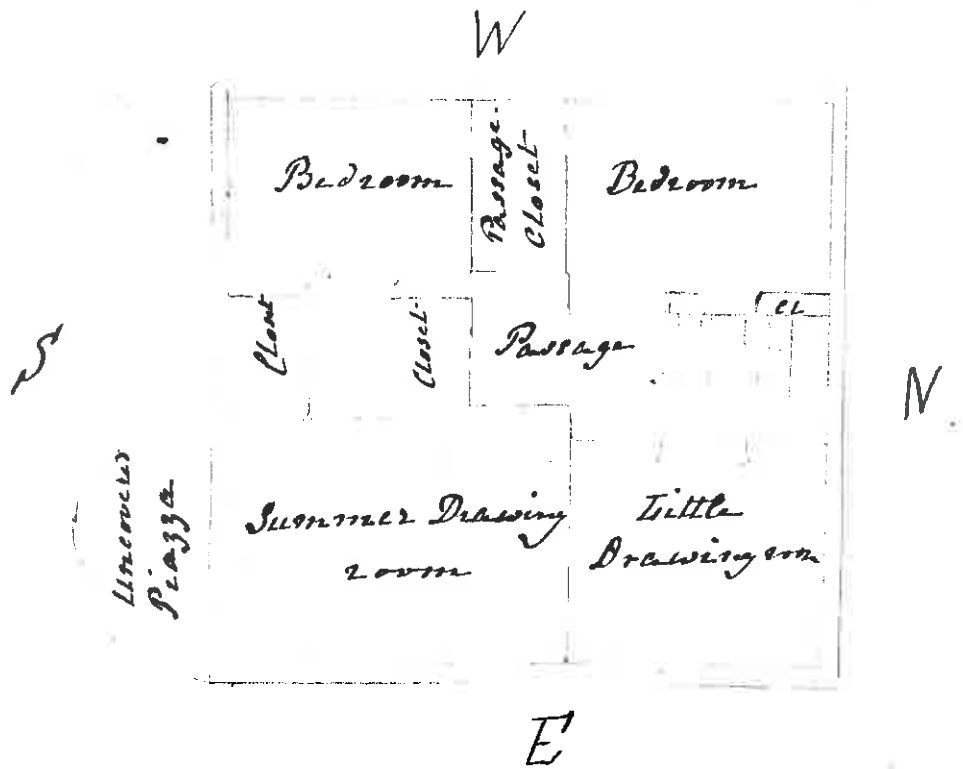 W
Bedroom
Passage.
Closet
Bedroom
Closet
Closet
Passage
CL
S
N
Uncovered
Piazza
Summer Drawing
room
Little
Drawing rm
E